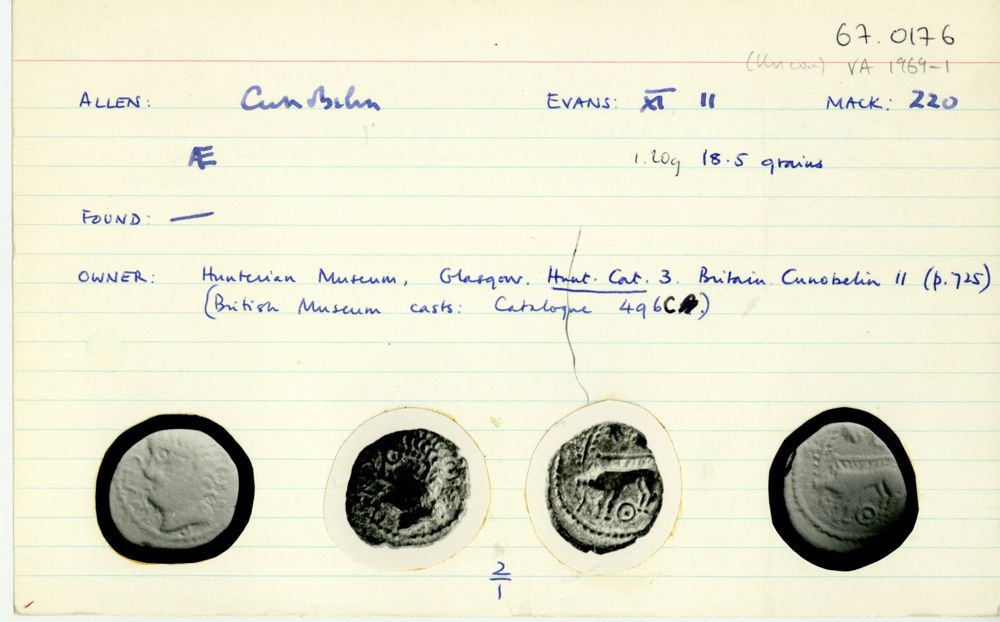 67.0176
(Unicorn) VA 1969-1
ALLEN: Cunobelin EVANS: XI 11 MACK: 220
Æ 1.20g 18.5 grains
FOUND: —
OWNER: Hunterian Museum, Glasgow. Hunt. Cat. 3. Britain Cunobelin 11 (p.725)
(British Museum casts: Catalogue 496C.)
2
1